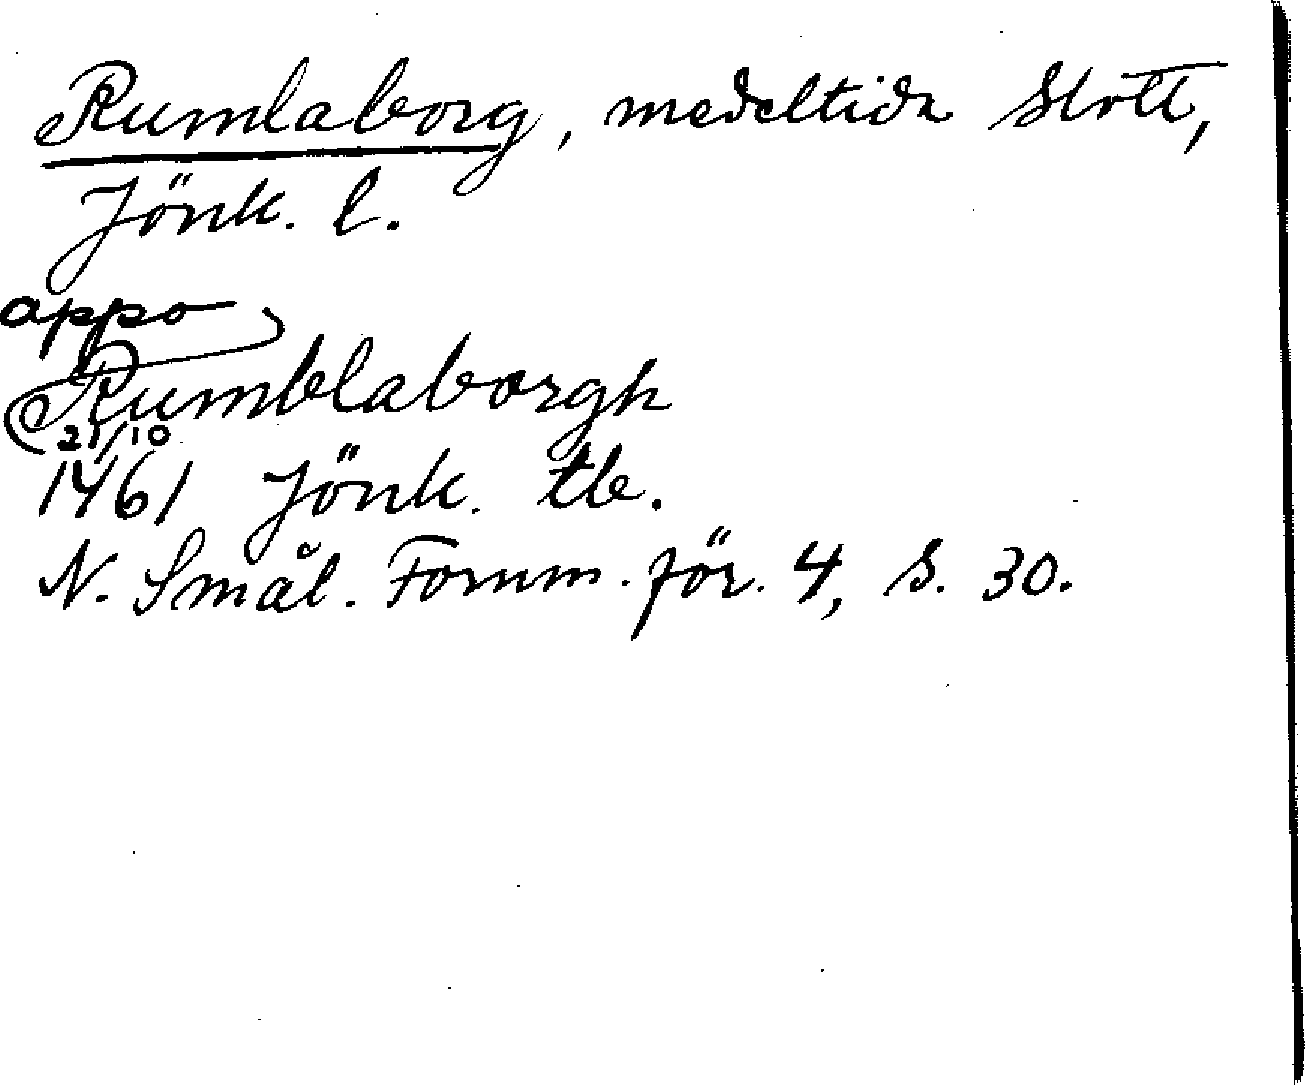 Rumlaborg, medeltida slott,
Jönk. l.
appo
Rumblaborgh
21/10
1461 Jönk. tb.
N. Smål. Fornm. för. 4, s. 30.